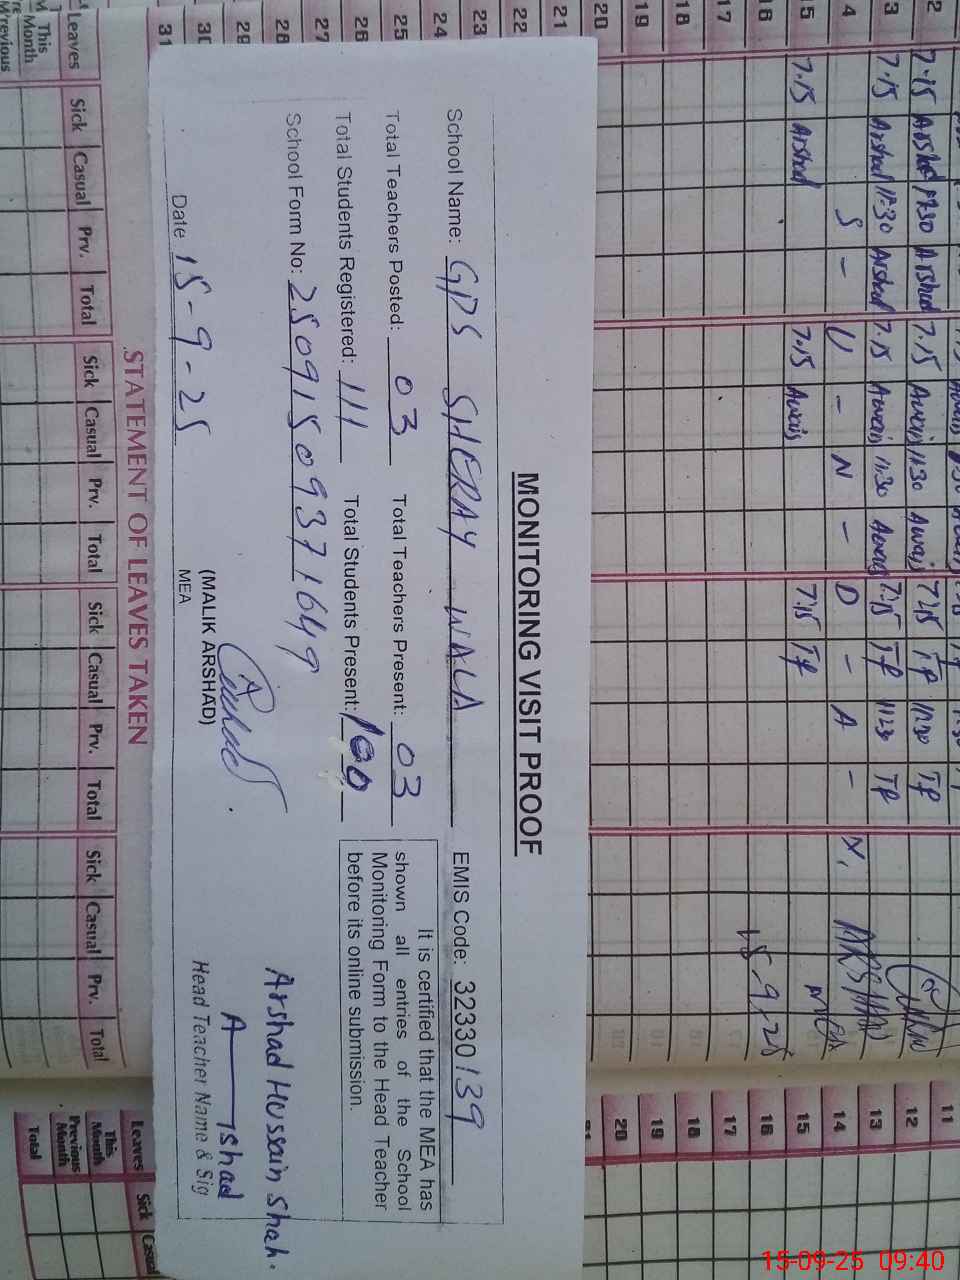 MONITORING VISIT PROOF
School Name: GPS SHERAY WALA EMIS Code: 32330139
Total Teachers Posted: 03 Total Teachers Present: 03
Total Students Registered: 111 Total Students Present: 100
School Form No: 25091509371649
It is certified that the MEA has
shown all entries of the School
Monitoring Form to the Head Teacher
before its online submission.
(MALIK ARSHAD)
MEA
Date 15-9-25
Arshad Hussain Shah.
Head Teacher Name & Sig
STATEMENT OF LEAVES TAKEN
Leaves Sick Casual Prv. Total Sick Casual Prv. Total Sick Casual Prv. Total Sick Casual Prv. Total
This Month
Previous
12 7.15 Arshad 11:30 Arshad 7.15 Awais 11:30 Awais 7:15 TP 11:30 TP
13 7.15 Arshad 11:30 Arshad 7.15 Awais 11:30 Awais 7:15 TP 11:30 TP
14 S - U - N - D - A -
15 7.15 Arshad 7.15 Awais 7:15 TP
16
17
18
19
20
21
22
23
24
25
26
27
28
29
30
31
ARSHAD
MEA
15-9-25
11
12
13
14
15
16
17
18
19
20
Leaves Sick Casual
This Month
Previous Month
Total
15-09-25 09:40